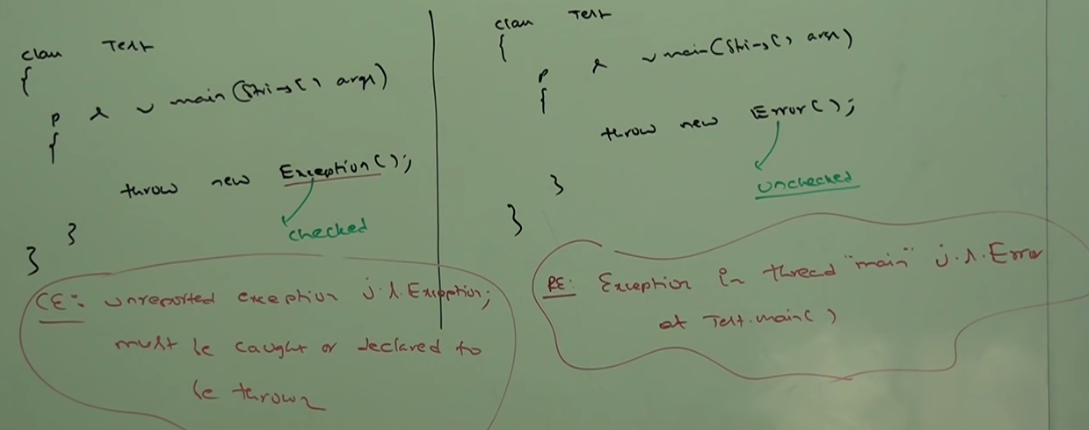 class Test
{
p s v main(String[] args)
{
throw new Exception();
checked
}
}
CE: unreported exception j.l.Exception;
must be caught or declared to
be thrown
class Test
{
p s v main(String[] args)
{
throw new Error();
unchecked
}
}
RE: Exception in thread "main" j.l.Error
at Test.main()